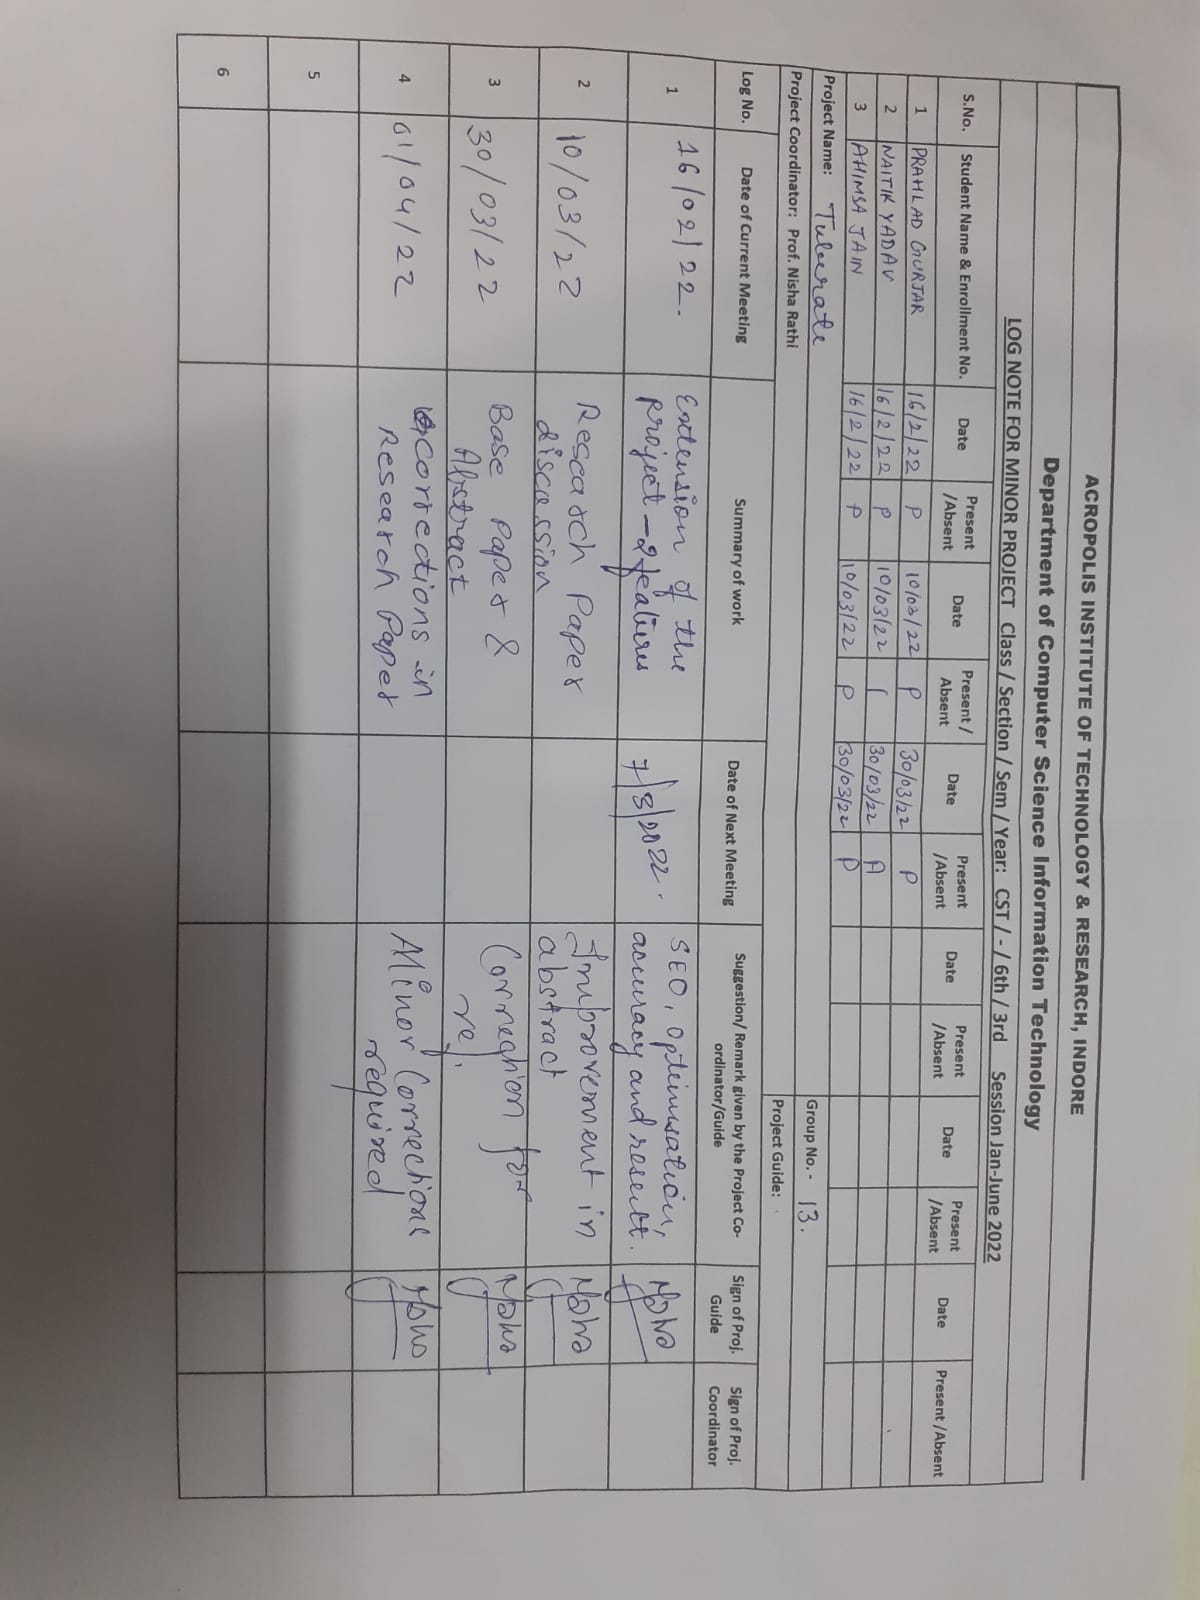 ACROPOLIS INSTITUTE OF TECHNOLOGY & RESEARCH, INDORE
Department of Computer Science Information Technology
LOG NOTE FOR MINOR PROJECT Class / Section / Sem / Year: CST / - / 6th / 3rd Session Jan-June 2022
S.No. Student Name & Enrollment No. Date Present /Absent Date Present / Absent Date Present /Absent Date Present /Absent Date Present /Absent Date Present /Absent
1 PRAHLAD GURJAR 16/2/22 P 10/03/22 P 30/03/22 P
2 NAITIK YADAV 16/2/22 P 10/03/22 30/03/22 A
3 AHIMSA JAIN 16/2/22 P 10/03/22 P 30/03/22 P
Project Name: Tuberate Group No.- 13.
Project Coordinator: Prof. Nisha Rathi Project Guide:
Log No. Date of Current Meeting Summary of work Date of Next Meeting Suggestion/ Remark given by the Project Co-ordinator/Guide Sign of Proj. Guide Sign of Proj. Coordinator
1 16/02/22. Extension of the 7/3/2022. SEO, Optimisation,
project - 2 features accuracy and result.
2 10/03/22 Research Paper Improvement in
discussion abstract
3 30/03/22 Base Paper & Correction for
Abstract
4 01/04/22 Corrections in Minor Corrections
Research Paper required
5
6